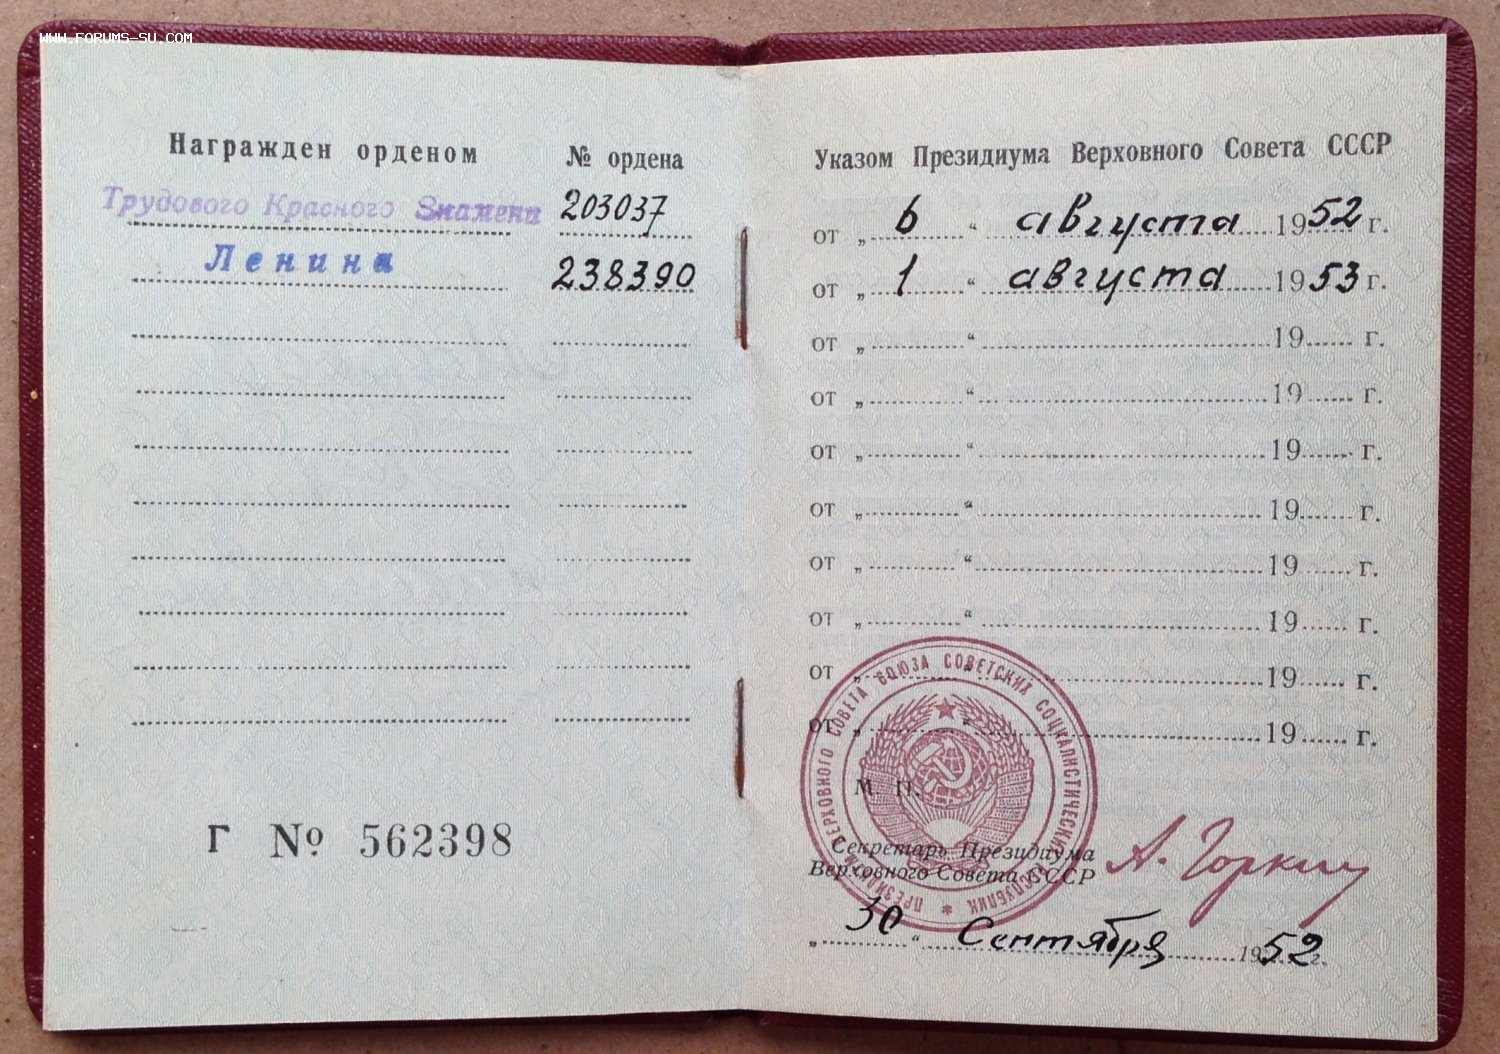 WWW.FORUMS-SU.COM
Награжден орденом № ордена
Трудового Красного Знамени 203037
Ленина 238390
Г № 562398
Указом Президиума Верховного Совета СССР
от „ 6 “ августа 1952 г.
от „ 1 “ августа 1953 г.
от „ “ 19 г.
от „ “ 19 г.
от „ “ 19 г.
от „ “ 19 г.
от „ “ 19 г.
от „ “ 19 г.
от „ “ 19 г.
от „ “ 19 г.
ПРЕЗИДИУМ ВЕРХОВНОГО СОВЕТА СОЮЗА СОВЕТСКИХ СОЦИАЛИСТИЧЕСКИХ РЕСПУБЛИК
М. П.
Секретарь Президиума
Верховного Совета СССР
А. Горкин
„ 30 “ Сентября 1952 г.